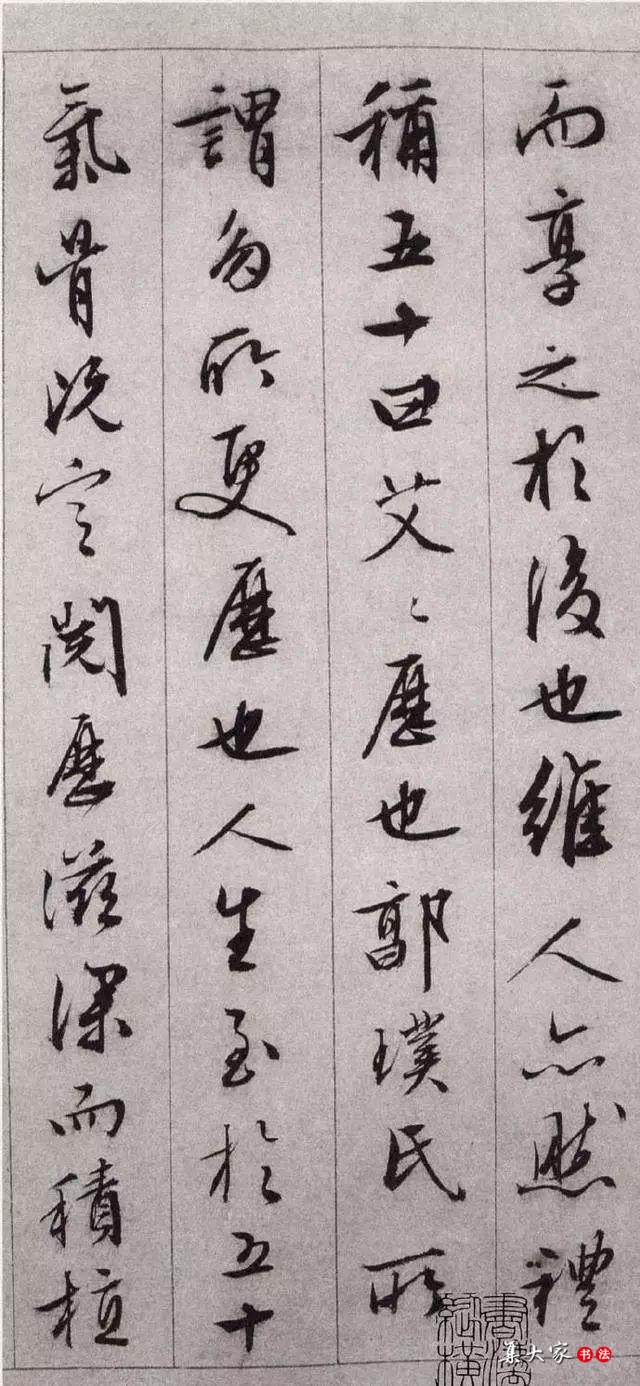 而享之於後也維人亦然禮
稱五十曰艾〻歷也郭璞氏所
謂多所更歷也人生至於五十
氣骨既定閱歷滋深而積植
集大家书法